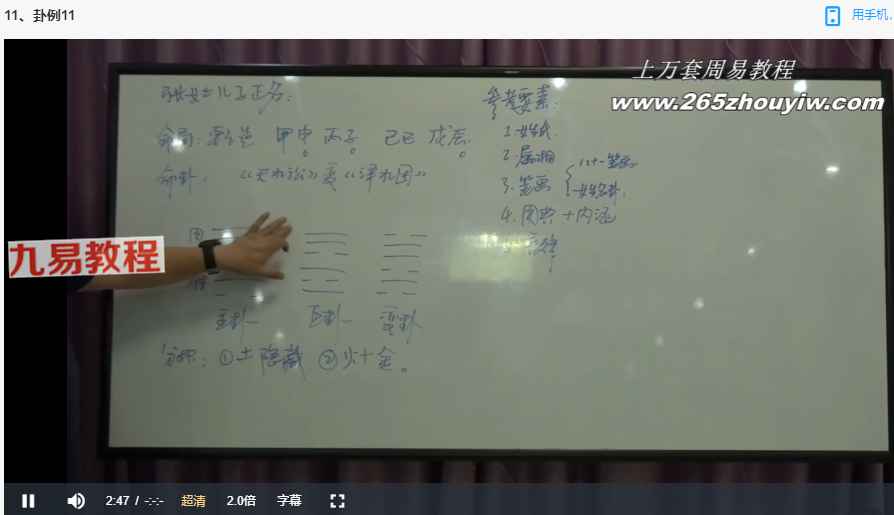 11、卦例11
用手机
上万套周易教程
www.265zhouyiw.com
张女士儿子正名：
参考要素：
命局：乾造 甲申 丙子 己巳 戊辰
1.姓氏
命卦：《天水讼》变《泽水困》
2.属相
3.笔画
4.国典+内涵
九易教程
主卦 互卦 变卦
分析：①土隐藏 ②火+金。
2:47 / -:-:-
超清
2.0倍
字幕